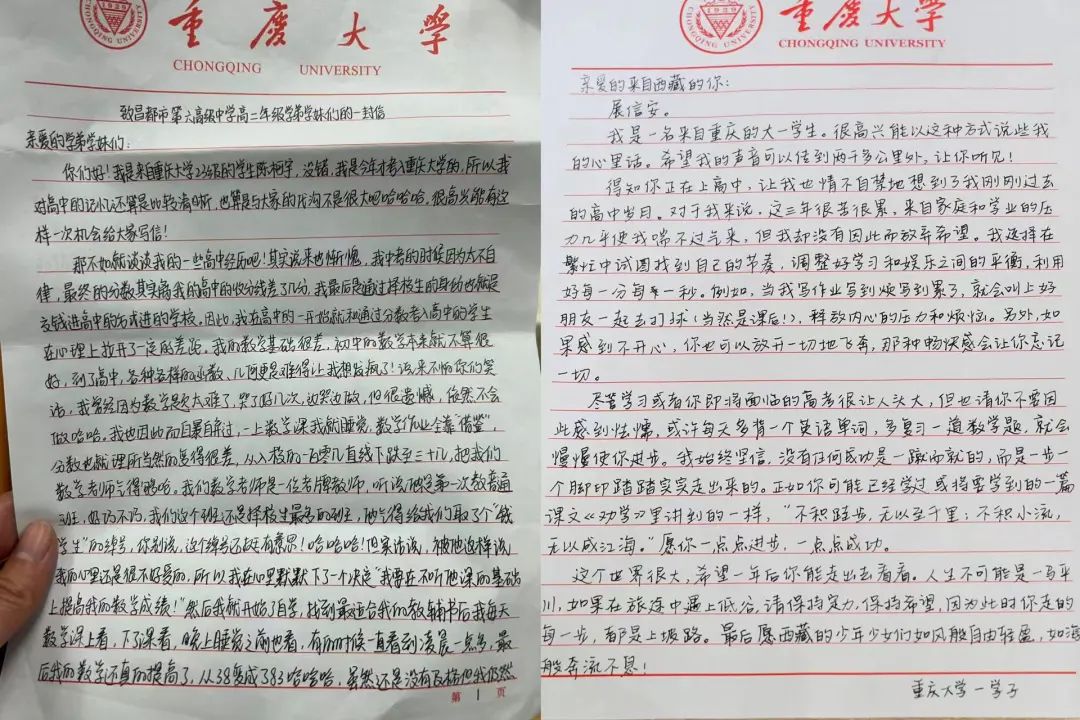 重庆大学
CHONGQING UNIVERSITY
致昌都市第六高级中学高二年级学弟学妹们的一封信
亲爱的学弟学妹们：
你们好！我是来自重庆大学23级的学生陈柯宇，没错，我是今年才考入重庆大学的，所以我
对高中的记忆还算是比较清晰，也算是与大家的代沟不是很大吧哈哈哈，很高兴能有这
样一次机会给大家写信！
那不如就谈谈我的一些高中经历吧！其实说来也惭愧，我中考的时候因为太不自
律，最终的分数其实离我的高中的收分线差了几分，我最后是通过择校生的身份也就是
交钱进高中的方式进的学校，因此，我在高中的一开始就和通过分数考入高中的学生
在心理上拉开了一定的差距。我的数学基础很差，初中的数学本来就不算很
好，到了高中，各种各样的函数、几何更是难得让我想发疯了！说来不怕你们笑
话，我曾经因为数学题太难了，哭了好几次，边哭边做，但很遗憾，依然不会
做哈哈。我也因此而自暴自弃过，一上数学课我就睡觉，数学作业全靠“借鉴”，
分数也就理所当然的考得很差，从入校的一百零几直线下跌至三十几，把我们
数学老师气得够呛。我们数学老师是一位老牌教师，听说他是第一次教普通
班，好巧不巧，我们这个班还是择校生最多的班，他气得给我们取了个“钱
学生”的绰号，你别说，这个绰号还挺有意思！哈哈哈！但实话说，被他这样说
我的心里还是很不好受的，所以我在心里默默下了一个决定“我要在不听他课的基础
上提高我的数学成绩！”然后我就开始了自学，找到最适合我的教辅书后我每天
数学课上看，下了课看，晚上睡觉之前也看，有的时候一直看到凌晨一点多，最
后我的数学还真的提高了，从38变成了83哈哈哈，虽然还是没有及格但我仍然
第 1 页
重庆大学
CHONGQING UNIVERSITY
亲爱的来自西藏的你：
展信安。
我是一名来自重庆的大一学生。很高兴能以这种方式说些我
的心里话。希望我的声音可以传到两千多公里外，让你听见！
得知你正在上高中，让我也情不自禁地想到了我刚刚过去
的高中岁月。对于我来说，这三年很苦很累，来自家庭和学业的压
力几乎使我喘不过气来，但我却没有因此而放弃希望。我选择在
繁忙中试图找到自己的节奏，调整好学习和娱乐之间的平衡，利用
好每一分每一秒。例如，当我写作业写到烦写到累了，就会叫上好
朋友一起去打球（当然是课后！），释放内心的压力和烦恼。另外，如
果感到不开心，你也可以放开一切地飞奔，那种畅快感会让你忘记
一切。
尽管学习或者你即将面临的高考很让人头大，但也请你不要因
此感到怯懦，或许每天多背一个英语单词，多复习一道数学题，就会
慢慢使你进步。我始终坚信，没有任何成功是一蹴而就的，而是一步一
个脚印踏踏实实走出来的。正如你可能已经学过或将要学到的一篇
课文《劝学》里讲到的一样，“不积跬步，无以至千里；不积小流，
无以成江海。”愿你一点点进步，一点点成功。
这个世界很大，希望一年后你能走出去看看。人生不可能是一马平
川，如果在旅途中遇上低谷，请保持定力，保持希望，因为此时你走的
每一步，都是上坡路。最后愿西藏的少年少女们如风般自由轻盈，如海
般奔流不息！
重庆大学一学子